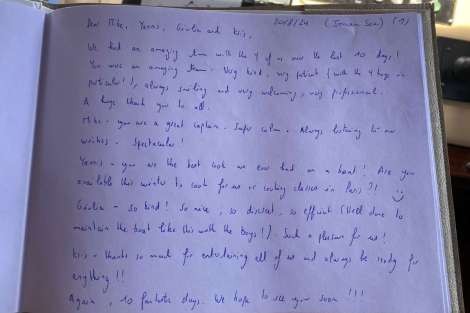 Dear Mike, Yannis, Giulia and Kris, 20/8/24 (Ionian Sea) (?)
We had an amazing time with the 4 of you over the last 10 days!
You were an amazing team. Very kind, very patient (with the 4 boys in
particular!), always smiling and very welcoming, very professional.
A huge thank you to all.
Mike - you are a great captain. Super calm. Always listening to our
wishes. Spectacular!
Yannis - you are the best cook we ever had on a boat! Are you
available this winter to cook for us or cooking classes in Paris?!
Giulia - so kind! So nice, so discreet, so efficient (Well done to
maintain the boat like this with the boys!). Such a pleasure for us!
Kris - thanks so much for entertaining all of us and always be ready for
anything!!
Again, 10 fantastic days. We hope to see you soon!!!